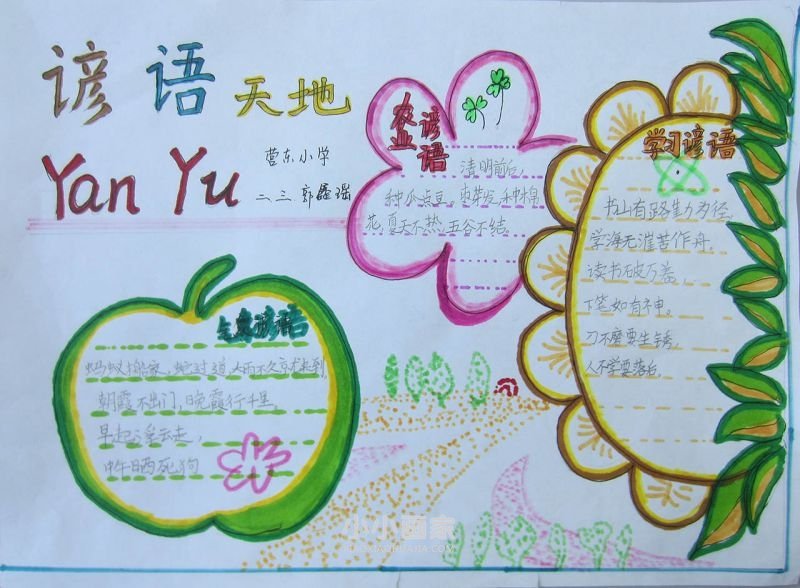 谚语天地
Yan Yu
营东小学
二、三 郭鑫瑶
农业谚语
清明前后,
种瓜点豆。枣芽发,种棉
花,夏天不热,五谷不结。
学习谚语
书山有路勤为径,
学海无涯苦作舟。
读书破万卷,
下笔如有神。
刀不磨要生锈,
人不学要落后。
气象谚语
蚂蚁搬家,蛇过道,大雨不久就来到。
朝霞不出门,晚霞行千里。
早起浮云走,
中午晒死狗
小小画家
XIAOXIAOHUAJIA.COM